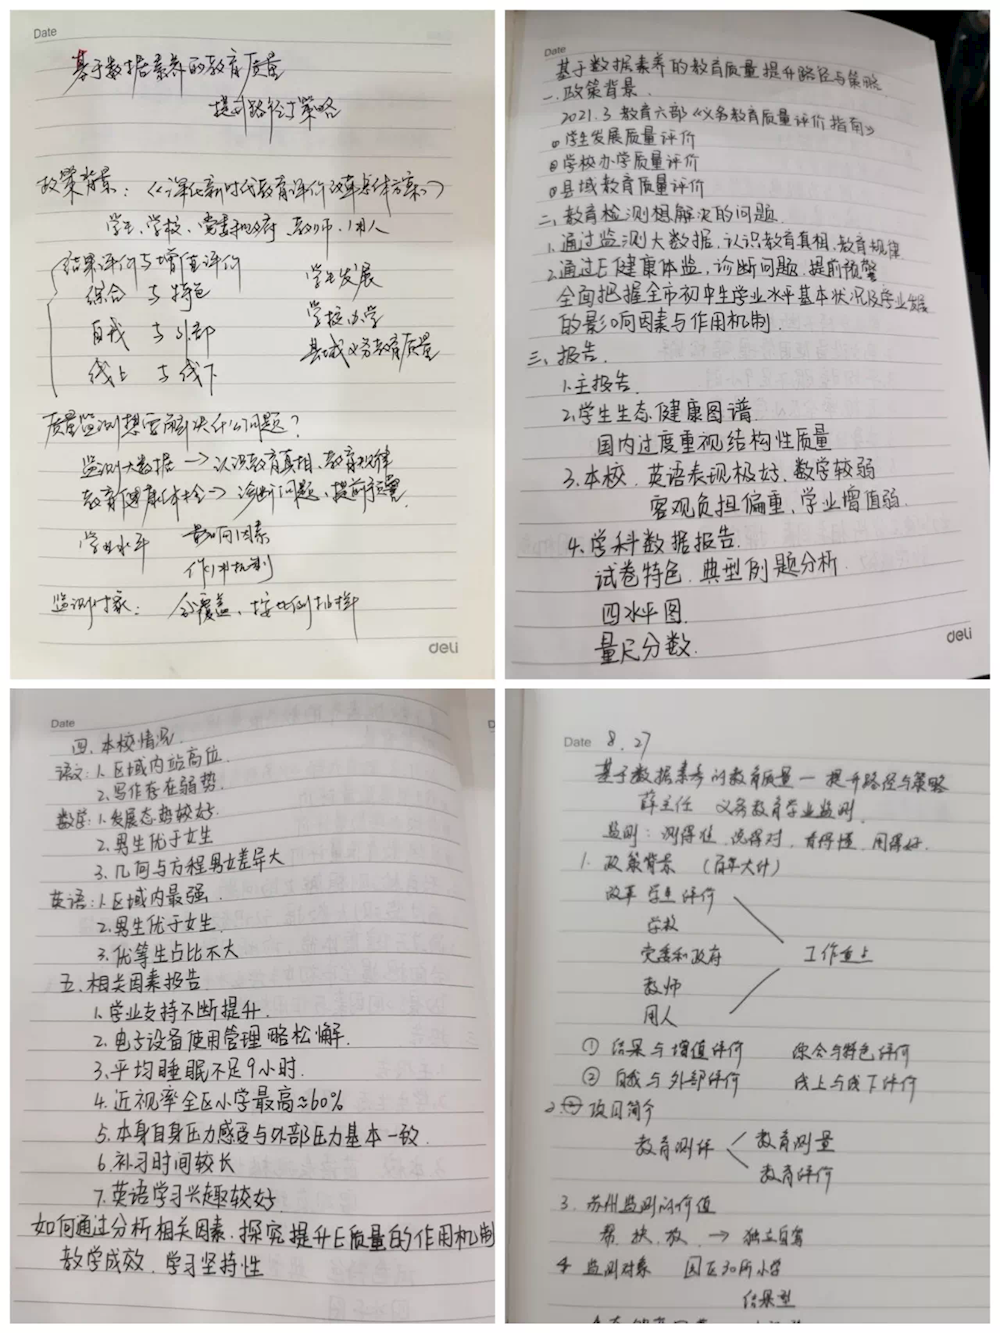 Date
基于数据素养的教育质量
提升路径与策略
政策背景：《深化新时代教育评价改革总体方案》
学生、学校、党委和政府 教师、用人
结果评价与增值评价
综合 与特色 学生发展
自我 与外部 学校办学
线上 与线下 县域义务教育质量
质量监测想要解决什么问题？
监测大数据→认识教育真相、教育规律
教育健康体检→诊断问题、提前预警
学业水平 影响因素
作用机制
监测对象： 全覆盖、按比例抽样
deli
Date
基于数据素养的教育质量提升路径与策略
一、政策背景
2021.3 教育六部《义务教育质量评价指南》
学生发展质量评价
学校办学质量评价
县域教育质量评价
二、教育检测想解决的问题
1.通过监测大数据、认识教育真相、教育规律
2.通过E健康体监，诊断问题、提前预警
全面把握全市初中生学业水平基本状况及学业发展
的影响因素与作用机制
三、报告
1.主报告
2.学生生态健康图谱
国内过度重视结构性质量
3.本校、英语表现极好、数学较弱
客观负担偏重、学业增值弱
4.学科数据报告
试卷特色、典型例题分析
四水平图
量尺分数.
deli
Date
四、本校情况
语文:1.区域内站高位
2.写作存在弱势
数学:1.发展态势较好
2.男生优于女生
3.几何与方程男女差异大
英语:1.区域内最强
2.男生优于女生
3.优等生占比不大
五.相关因素报告
1.学业支持不断提升.
2.电子设备使用管理略松懈.
3.平均睡眠不足9小时.
4.近视率全区小学最高≈60%
5.本身自身压力感受与外部压力基本一致.
6.补习时间较长
7.英语学习兴趣较好
如何通过分析相关因素、探究提升E质量的作用机制
教学成效、学习坚持性
Date 8.27
基于数据素养的教育质量—提升路径与策略
薛主任 义务教育学业监测
监测：测得准、说得对、看得懂、用得好.
1. 政策背景 （百年大计）
改革 学生评价
学校
党委和政府 工作重上
教师
用人
① 结果与增值评价 综合与特色评价
② 自我与外部评价 线上与线下评价
2. 项目简介
教育测评 教育测量
教育评价
3. 苏州监测的价值
帮、扶、放 → 独立自驾
4 监测对象 园区30所小学
结果型